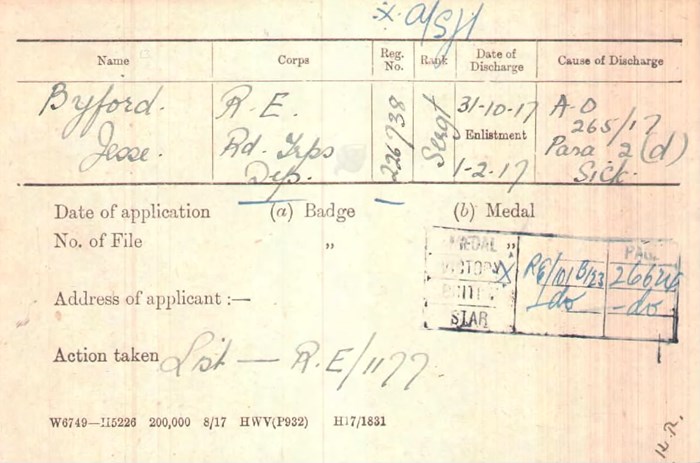 x. A/Sjt
Name Corps Reg. No. Rank Date of Discharge Cause of Discharge
Byford. R. E. 226738 Sergt 31-10-17 A.O
Jesse. Rd. Trps Enlistment 265/17
Dep. 1-2.17 Para 2 (d)
Sick.
Date of application (a) Badge (b) Medal
No. of File „ „
MEDAL PAGE
VICTORY X RE/101 B123 26646
BRITISH do do
STAR
Address of applicant :—
Action taken List — R.E/1177.
W6749—H5226 200,000 8/17 HWV(P932) H17/1831
K.R.